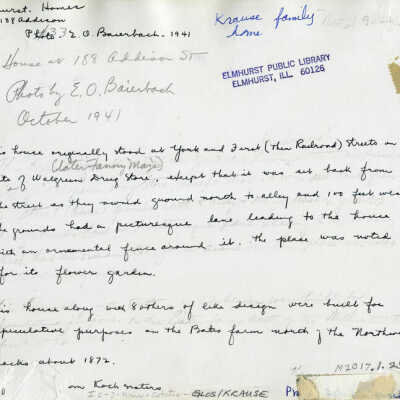 urst. Homes
188 Addison
Photo E. O. Baierbach. 1941
Krause family
home
House at 188 Addison St
ELMHURST PUBLIC LIBRARY
ELMHURST, ILL. 60126
Photo by E. O. Baierbach
October 1941
is house originally stood at York and First (then Railroad) Streets on
(later Fannie May)
te of Walgreen Drug Store, except that it was set back from
he street as they owned ground north to alley and 100 feet wes
he grounds had a picturesque lane leading to the house
ith an ornamental fence around it. The place was noted
for its flower garden.
is house along with 8 others of like design were built for
peculative purposes on the Bates farm north of the Northwe
acks about 1872.
M2017.1.23
on Koch notes
GLOS/KRAUSE